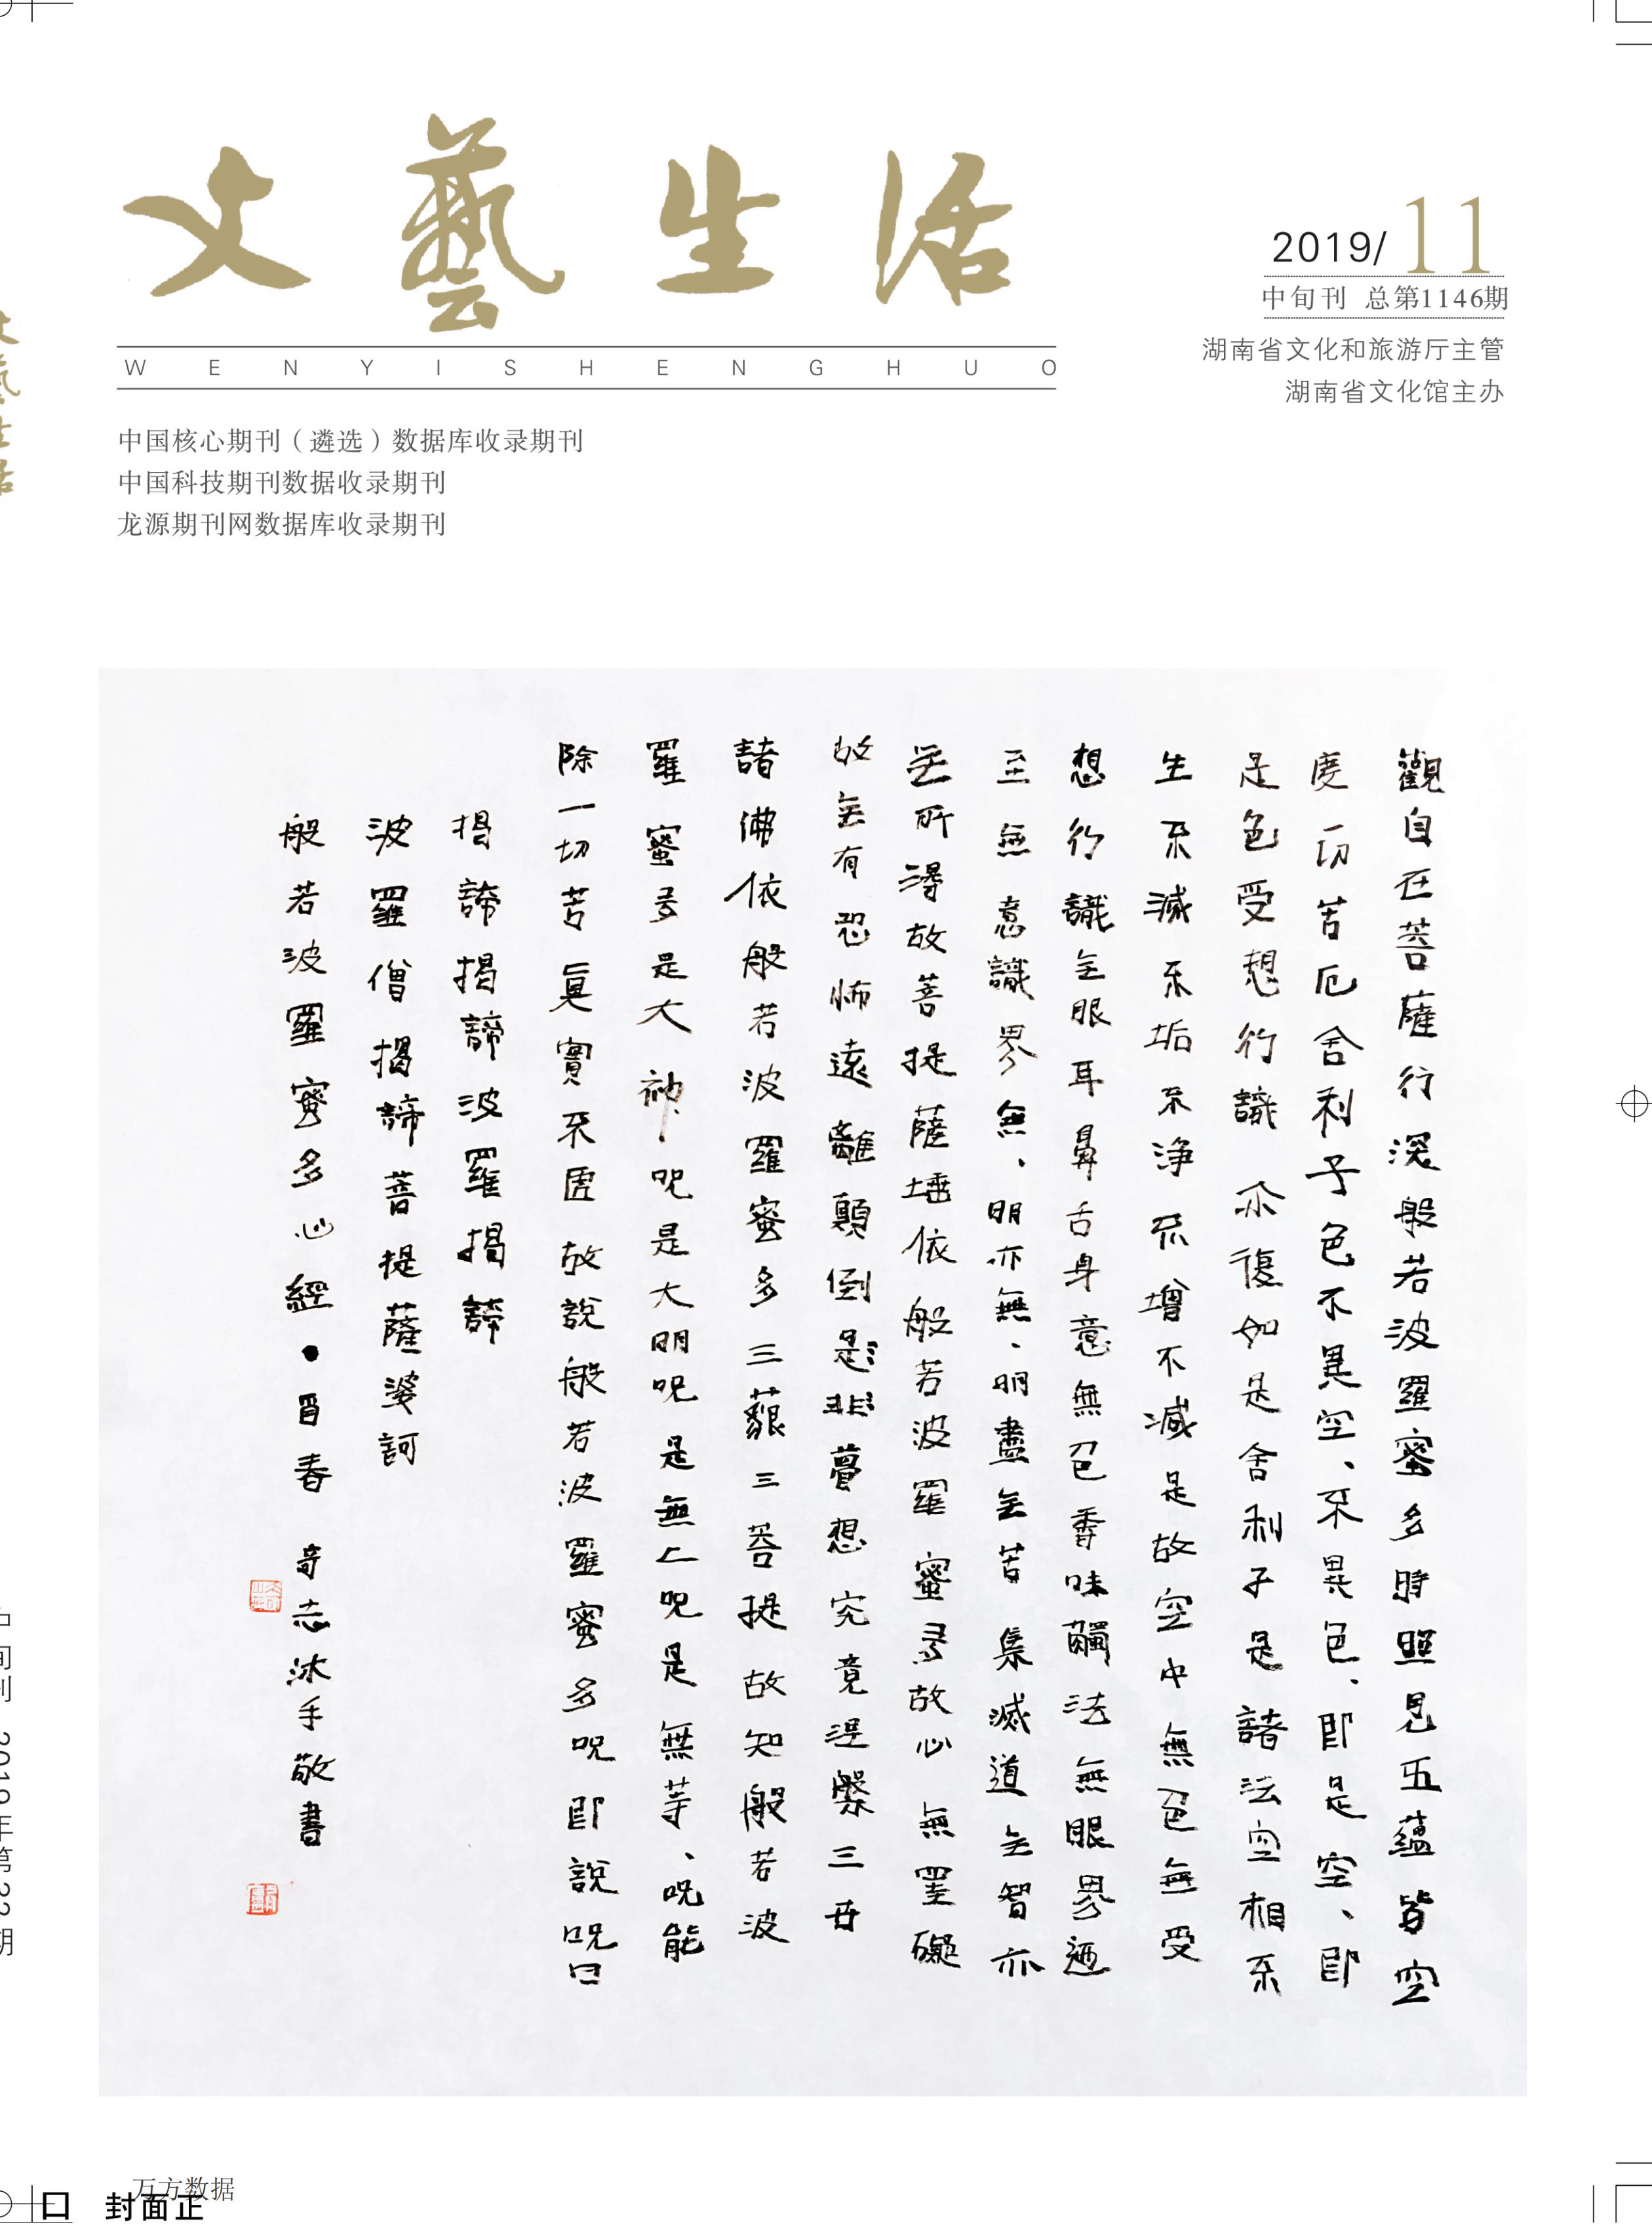 文藝生活
WENYISHENGHUO
2019/11
中旬刊 总第1146期
湖南省文化和旅游厅主管
湖南省文化馆主办
中国核心期刊（遴选）数据库收录期刊
中国科技期刊数据收录期刊
龙源期刊网数据库收录期刊
觀自在菩薩行深般若波羅蜜多時照見五蘊皆空
度一切苦厄舍利子色不異空、不異色、即是空、即
是色受想行識亦復如是舍利子是諸法空相不
生不滅不垢不净不增不减是故空中無色無受
想行識无眼耳鼻舌身意無色香味觸法無眼界迺
至無意識界無、明亦無、明盡无苦集滅道无智亦
无所得故菩提薩埵依般若波羅蜜多故心無罣礙
故无有恐怖遠離顛倒是非夢想究竟涅槃三世
諸佛依般若波羅蜜多三藐三菩提故知般若波
羅蜜多是大神咒是大明咒是無上咒是無等、咒能
除一切苦真實不虛故說般若波羅蜜多咒即說咒曰
揭諦揭諦波羅揭諦
波羅僧揭諦菩提薩婆訶
般若波羅蜜多心經 春 奇志沐手敬書
文藝生活
中旬刊 2019年第32期
万方数据
封面正